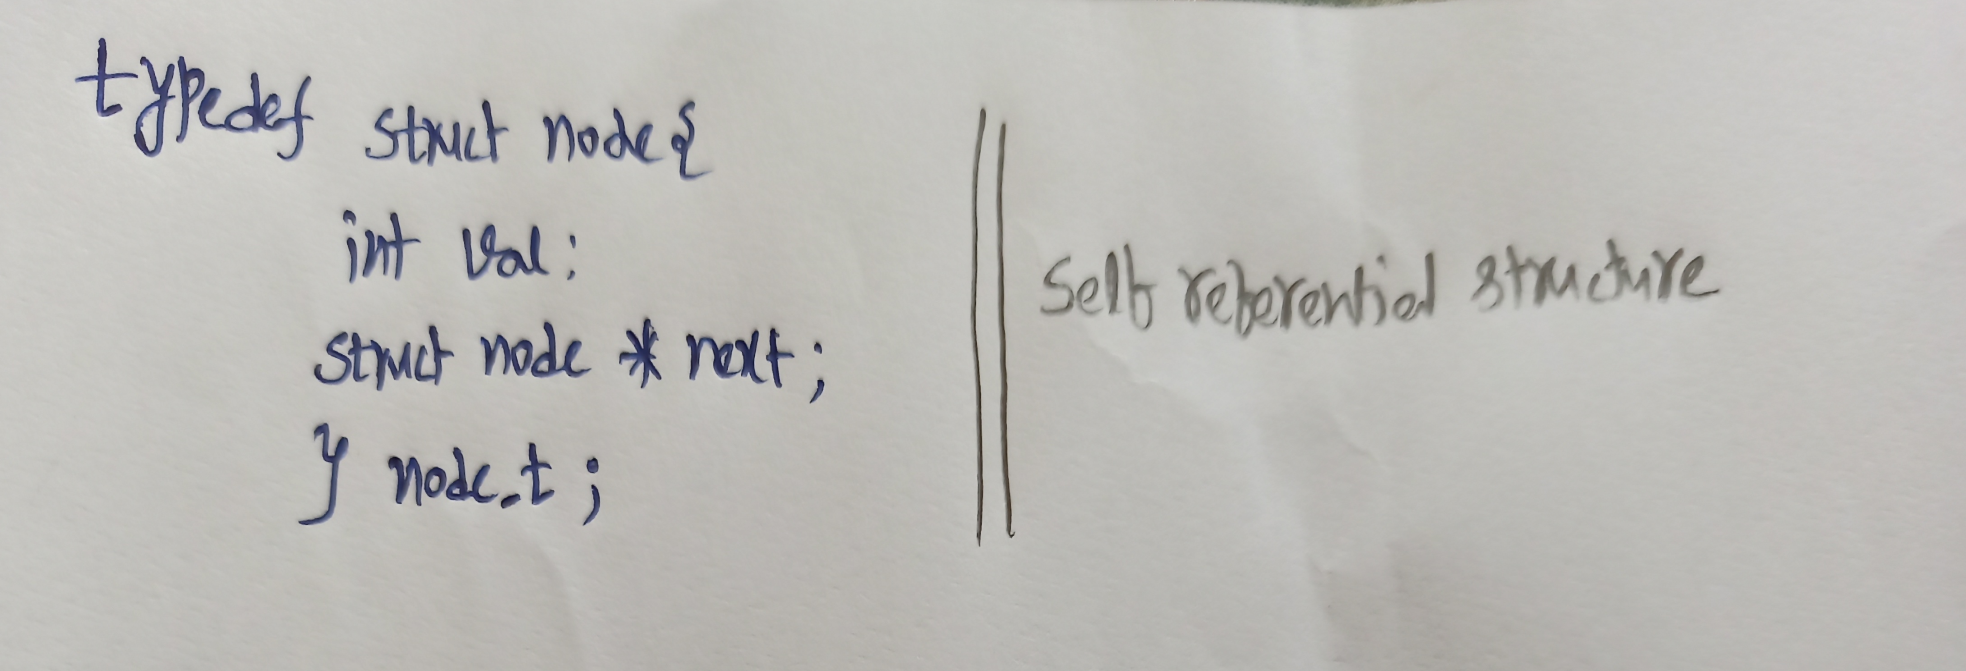 typedef struct node {
int val;
struct node * next;
} node_t;
Self referential structure